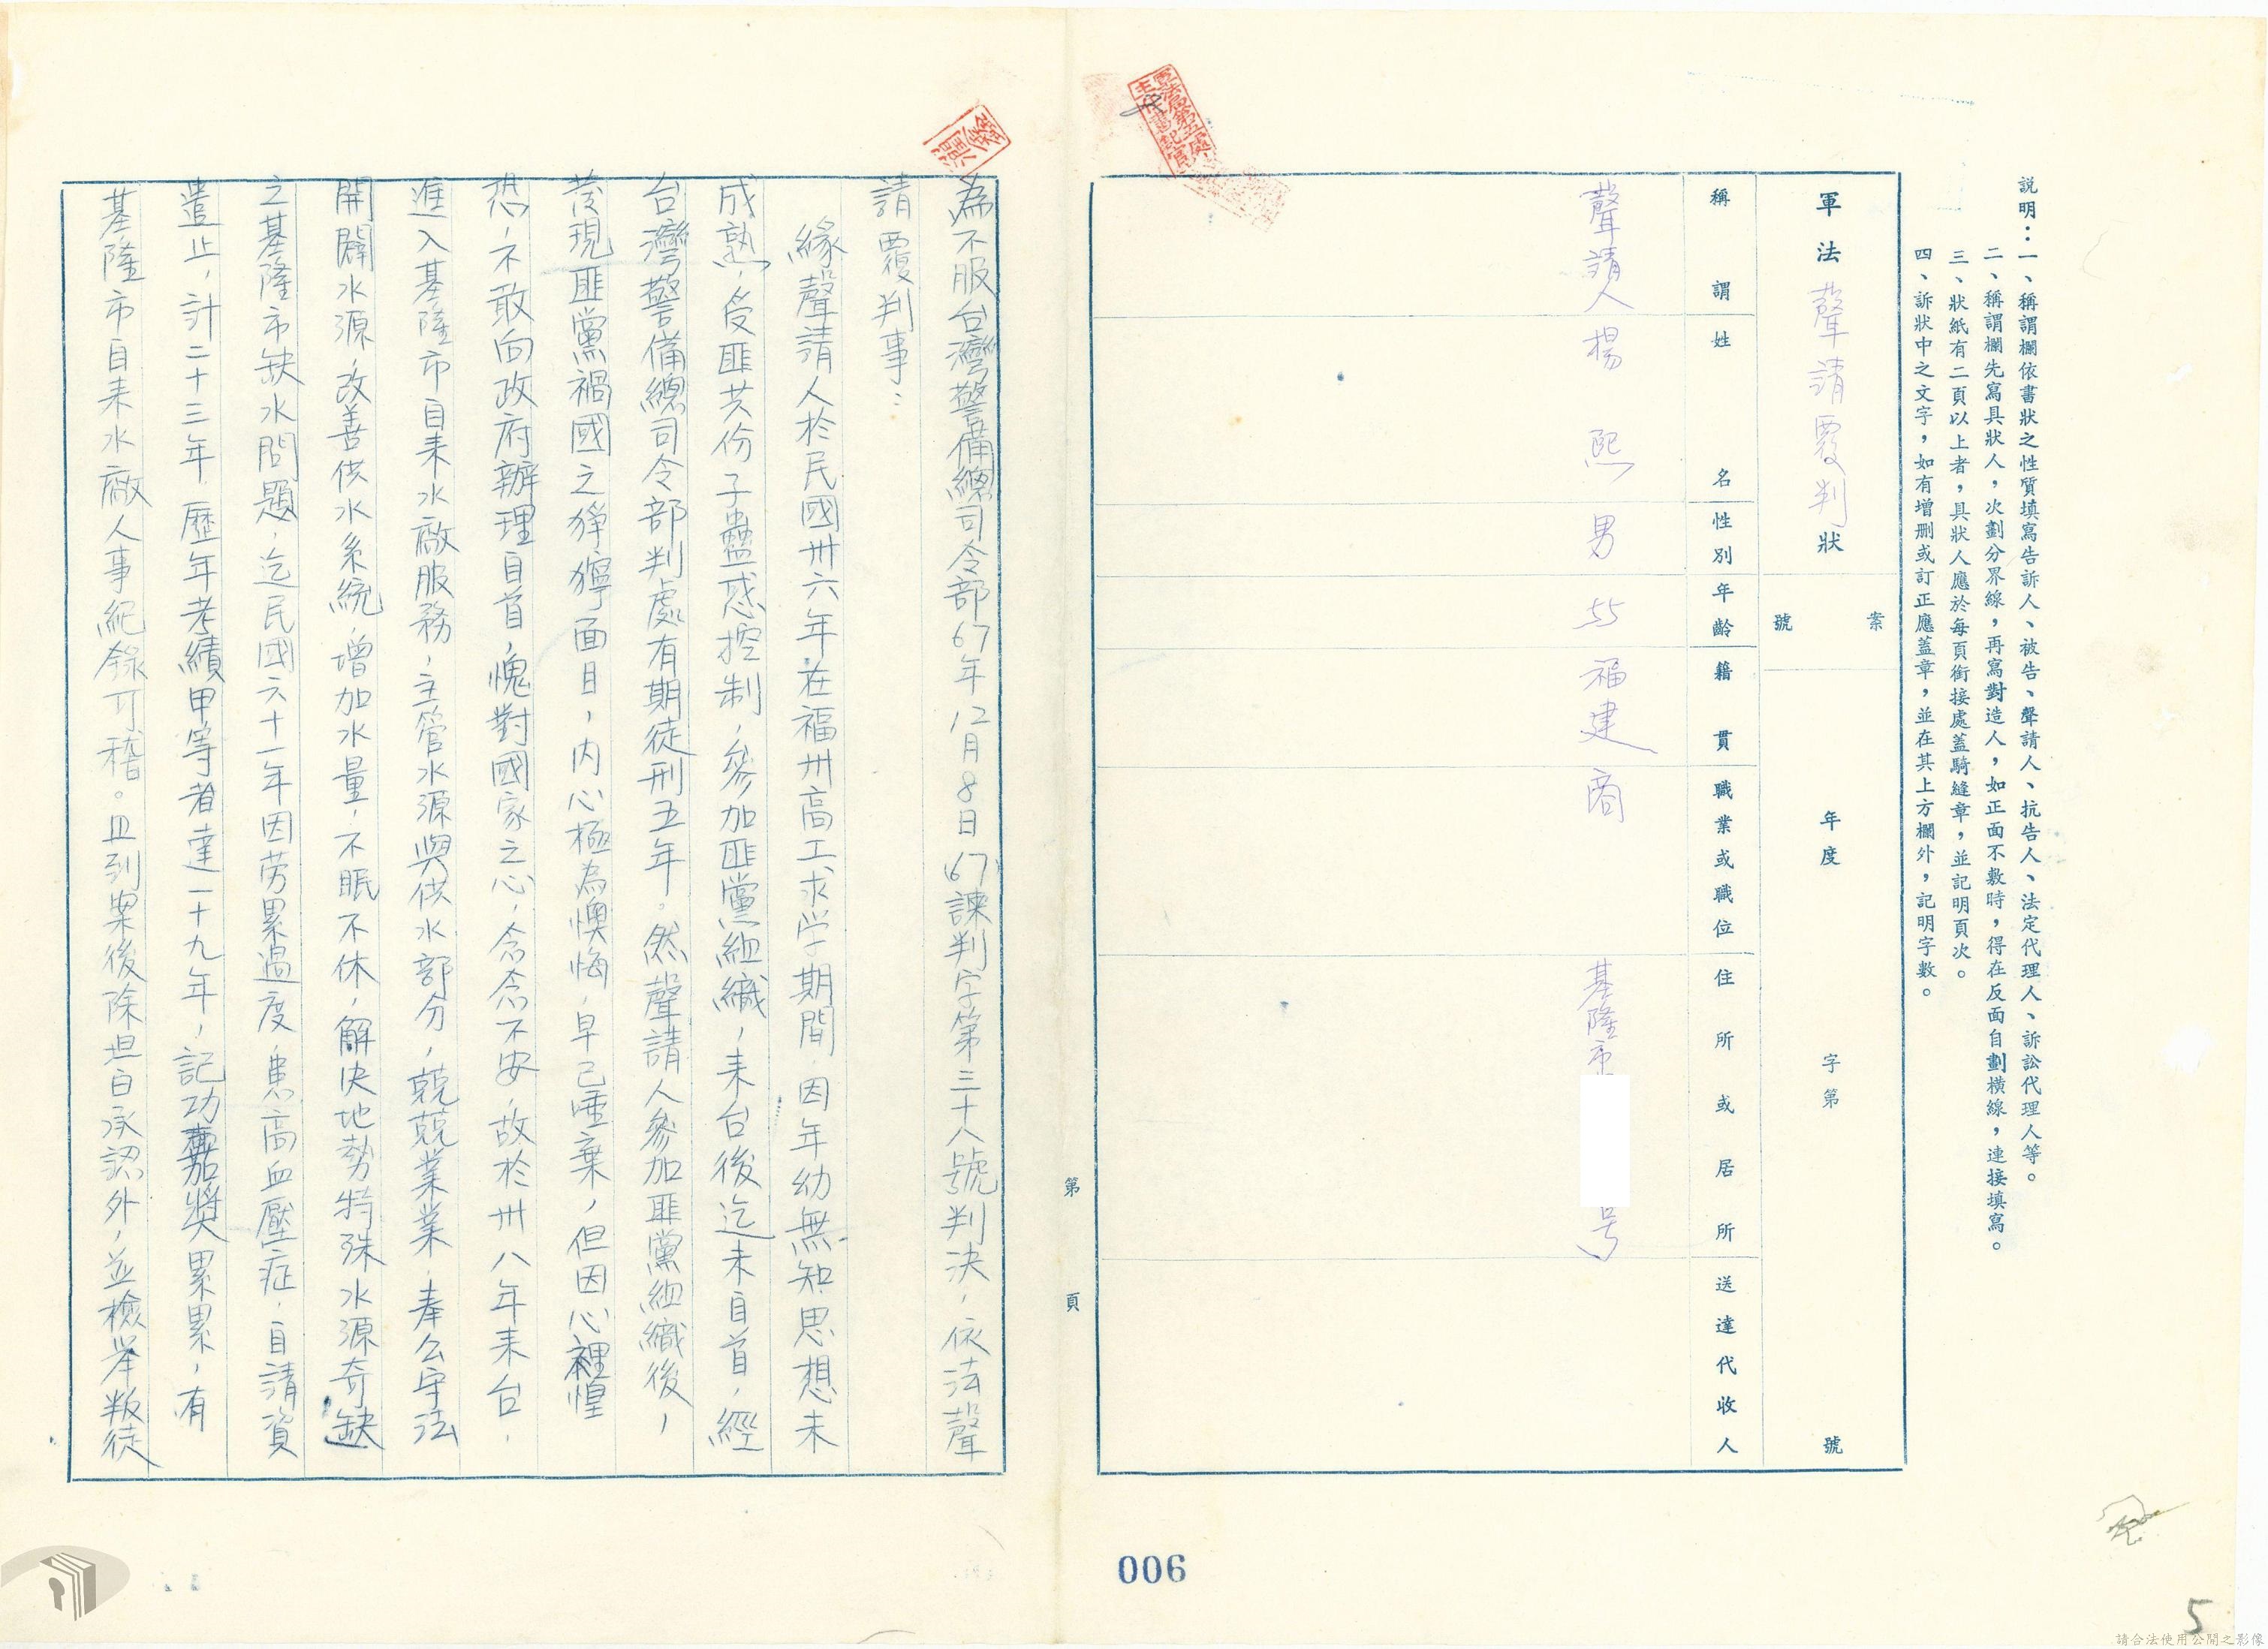 説明：一、稱謂欄依書狀之性質填寫告訴人、被告、聲請人、抗告人、法定代理人、訴訟代理人等。
二、稱謂欄先寫具狀人，次劃分界線，再寫對造人，如正面不敷時，得在反面自劃橫線，連接填寫。
三、狀紙有二頁以上者，具狀人應於每頁銜接處蓋騎縫章，並記明頁次。
四、訴狀中之文字，如有增刪或訂正應蓋章，並在其上方欄外，記明字數。
軍法聲請覆判狀
案號
年度 字第 號
稱謂 姓名 性別 年齡 籍貫 職業或職位 住所或居所 送達代收人
聲請人 楊熙 男 55 福建 商 基隆市 号
軍法局第五處
第 頁
為不服台灣警備總司令部67年12月8日(67)諫判字第三十八號判決，依法聲
請覆判事：
緣聲請人於民國卅六年在福州高工求学期間，因年幼無知思想未
成熟，受匪共份子蠱惑控制，參加匪黨組織，来台後迄未自首，經
台灣警備總司令部判處有期徒刑五年。然聲請人參加匪黨組織後，
發現匪黨禍國之猙獰面目，內心極為懊悔，早已唾棄，但因心裡惶
恐，不敢向政府辦理自首，愧對國家之心，念念不安，故於卅八年来台，
進入基隆市自来水廠服務，主管水源與供水部分，兢兢業業，奉公守法
開闢水源，改善供水系統，增加水量，不眠不休，解決地勢特殊水源奇缺
之基隆市缺水問題，迄民國六十一年因劳累過度，患高血壓症，自請資
遣止，計二十三年，歷年考績甲等者達一十九年，記功嘉獎累累，有
基隆市自来水廠人事紀錄可稽。且到案後除坦白承認外，並檢举叛徒
006
5
請合法使用公開之影像